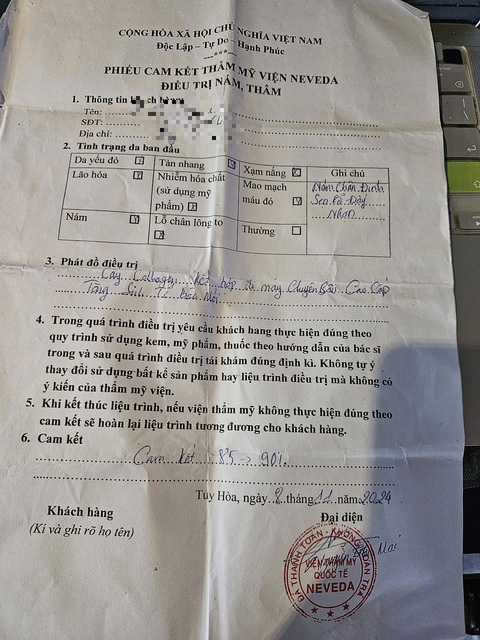 CỘNG HÒA XÃ HỘI CHỦ NGHĨA VIỆT NAM
Độc Lập – Tự Do – Hạnh Phúc
PHIẾU CAM KẾT THẨM MỸ VIỆN NEVEDA
ĐIỀU TRỊ NÁM, THÂM
1. Thông tin khách hàng
Tên:
SĐT:
Địa chỉ:
2. Tình trạng da ban đầu
Da yếu đỏ
Tàn nhang
Xạm nắng
Ghi chú
Lão hóa
Nhiễm hóa chất (sử dụng mỹ phẩm)
Mao mạch máu đỏ
Nám Chân Đinh
Nám
Lỗ chân lông to
Thường
3. Phát đồ điều trị
Cấy Collagen kết hợp đi máy Chuyên Sâu Cao Cấp
4. Trong quá trình điều trị yêu cầu khách hang thực hiện đúng theo
quy trình sử dụng kem, mỹ phẩm, thuốc theo hướng dẫn của bác sĩ
trong và sau quá trình điều trị tái khám đúng định kì. Không tự ý
thay đổi sử dụng bất kề sản phẩm hay liệu trình điều trị mà không có
ý kiến của thẩm mỹ viện.
5. Khi kết thúc liệu trình, nếu viện thẩm mỹ không thực hiện đúng theo
cam kết sẽ hoàn lại liệu trình tương đương cho khách hàng.
6. Cam kết
Cam kết 85 → 90%
Tuy Hòa, ngày 8 tháng 11 năm 2024
Khách hàng
Đại diện
(Kí và ghi rõ họ tên)
ĐÃ THANH TOÁN - KHÔNG HOÀN TRẢ
VIỆN THẨM MỸ
QUỐC TẾ
NEVEDA